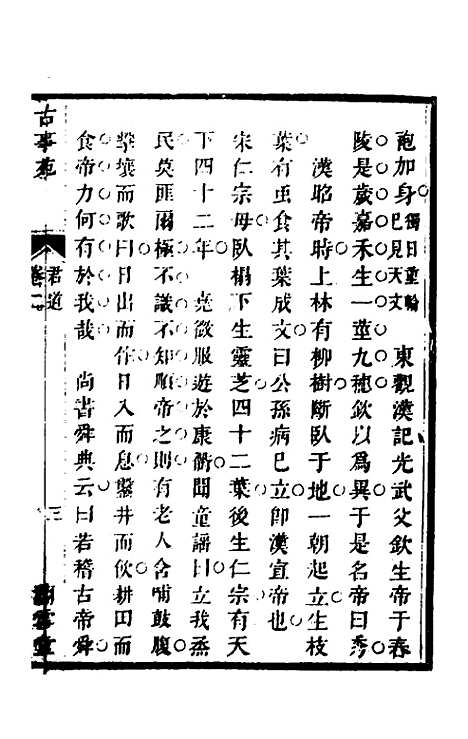 袍加身獨日重輪已見天文　東觀漢記光武父欽生帝于春
陵是歲嘉禾生一莖九穗欽以爲異于是名帝曰秀
漢昭帝時上林有柳樹斷臥于地一朝起立生枝
葉有虫食其葉成文曰公孫病已立卽漢宣帝也
宋仁宗母臥榻下生靈芝四十二葉後生仁宗有天
下四十二年　堯微服遊於康衢聞童謠曰立我蒸
民莫匪爾極不識不知順帝之則有老人含哺鼓腹
擊壤而歌曰日出而作日入而息鑿井而飲耕田而
食帝力何有於我哉　尚書舜典云曰若稽古帝舜
古事苑　卷二　君道　三